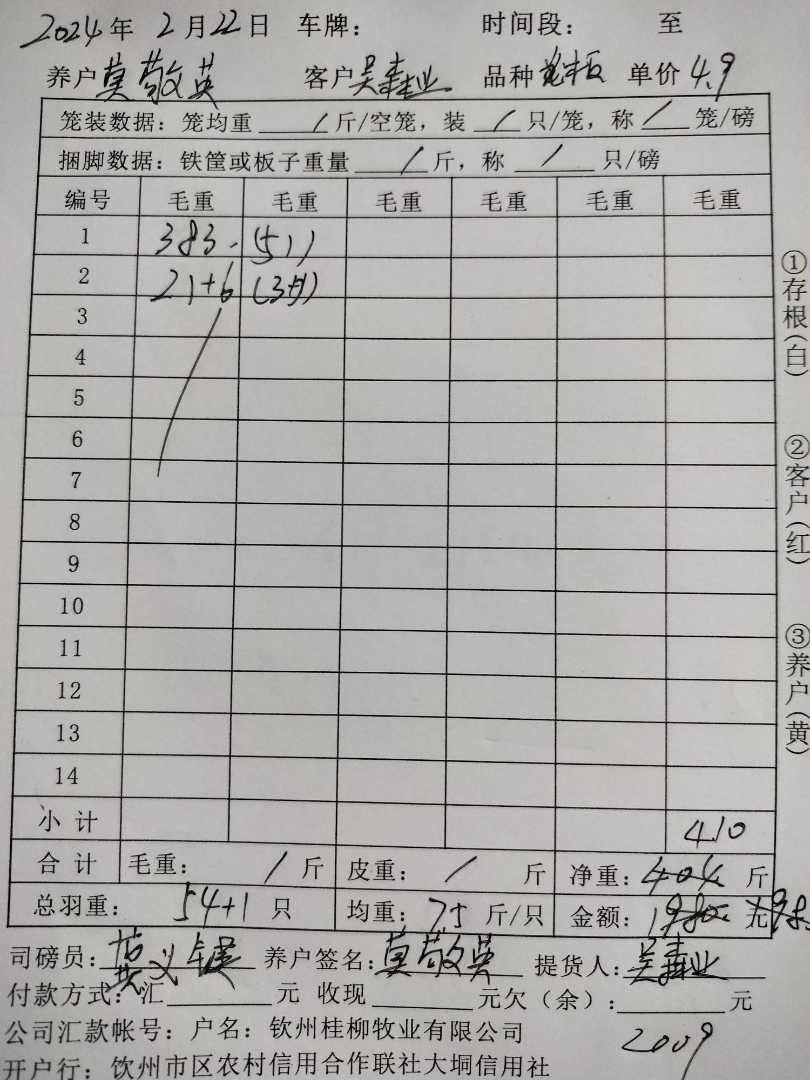 2024年 2月22日 车牌： 时间段： 至
养户 莫敬英 客户 吴森业 品种 单价 4.9
笼装数据：笼均重 / 斤/空笼，装 / 只/笼，称 / 笼/磅
捆脚数据：铁筐或板子重量 / 斤，称 / 只/磅
编号 毛重 毛重 毛重 毛重 毛重 毛重
1 383. (51)
2 21+6
3
4
5
6
7
8
9
10
11
12
13
14
小计 410
合计 毛重： / 斤 皮重： / 斤 净重：404 斤
总羽重： 54+1 只 均重：7.5 斤/只 金额：1980 元
司磅员： 养户签名：莫敬英 提货人：吴森业
付款方式：汇 元 收现 元欠（余）： 元
公司汇款帐号：户名：钦州桂柳牧业有限公司
2009
开户行：钦州市区农村信用合作联社大垌信用社
①存根(白)
②客户(红)
③养户(黄)